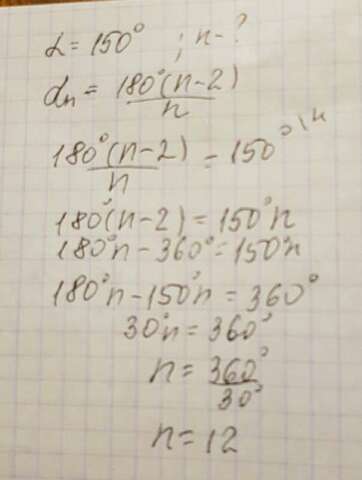 α = 150° ; n - ?
αn = 180°(n-2)/n
180°(n-2)/n = 150° |·n
180°(n-2) = 150°n
180°n - 360° = 150°n
180°n - 150°n = 360°
30°n = 360°
n = 360°/30°
n = 12